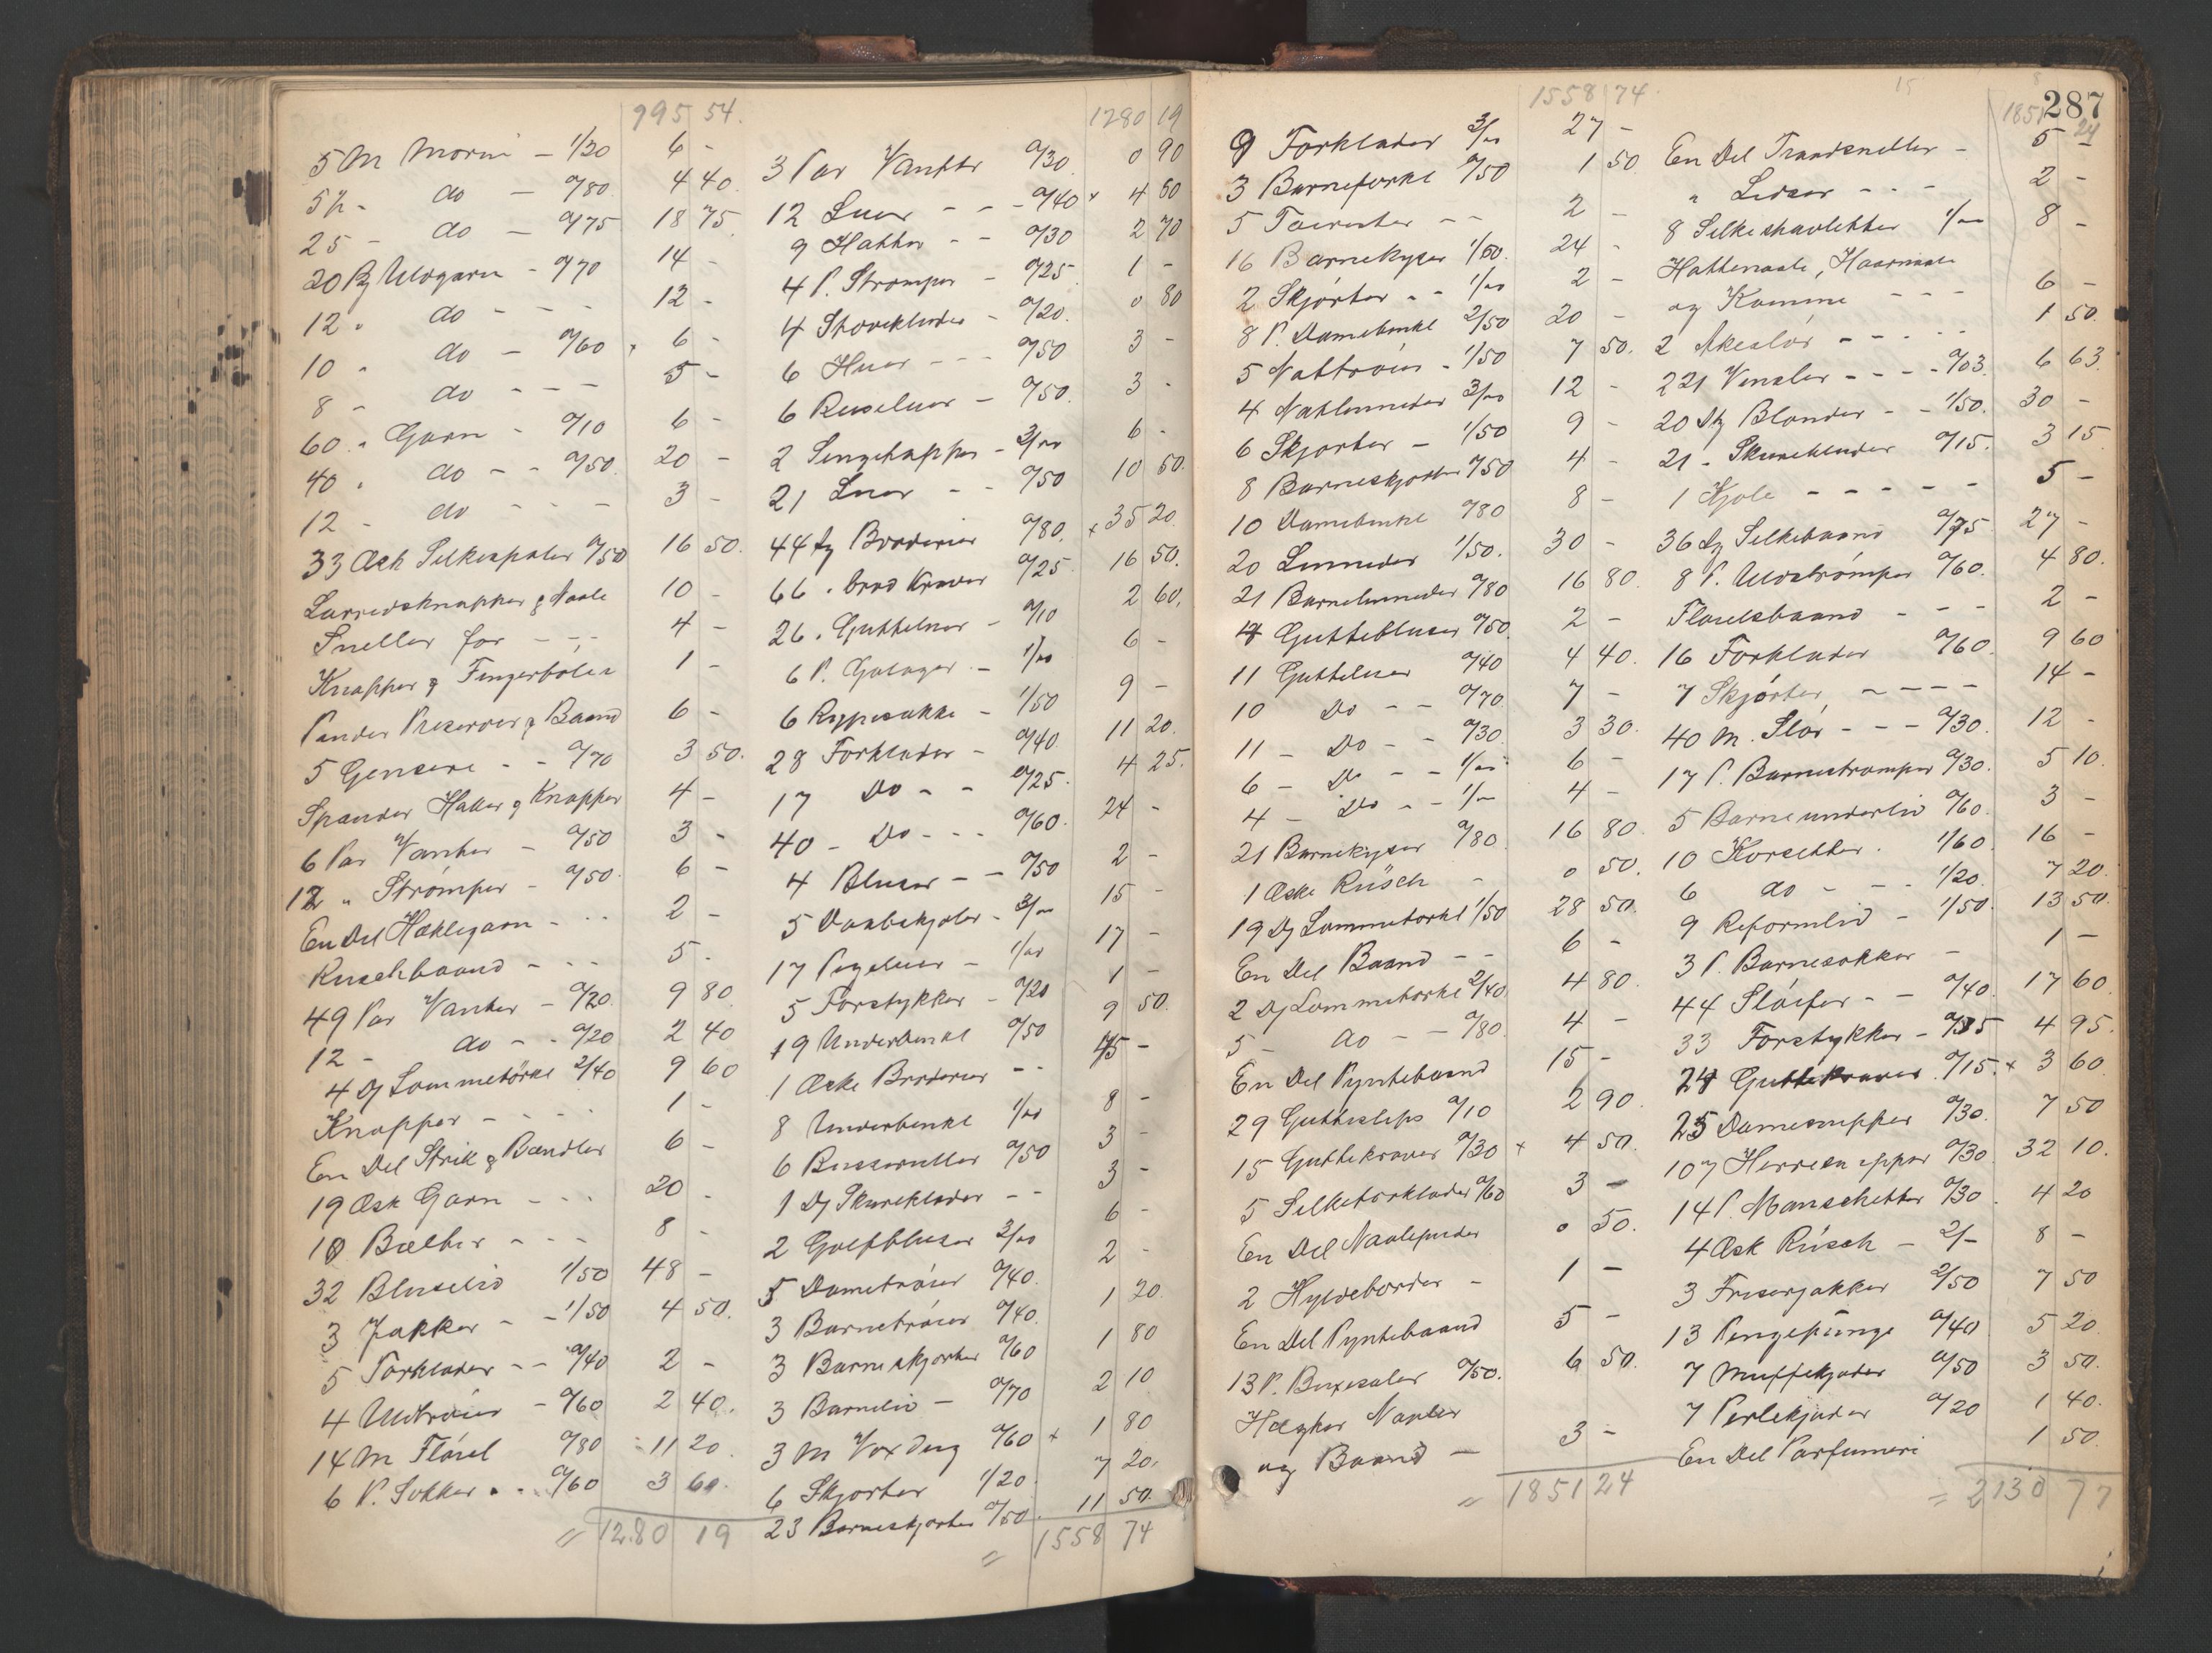 995 54.
5 M Morin - 1/20 6 -
5 1/2 - do - 0/80 4 40.
25 - do - 0/75 18 75
20 Bg Uldgarn - 0/70 14 -
12 " do - - - 12 -
10 " do - 0/60 6 -
8 - do - - - 5 -
60 " Garn - 0/10 6 -
40 " do - - 0/50 20 -
12 - do - - - 3 -
33 Æsk Silkespoler 0/50 16 50.
Lærredsknapper & Naale 10 -
Sneller for - - - 4 -
Knapper & Fingerbøler 1 -
Render Reserver & Baand 6 -
5 Gensere - - 0/70 3 50.
Spænder Hatter & Knapper 4 -
6 Par Vanter - 0/50 3 -
12 " Strømper - 0/50 6 -
En Del Hæklegarn - - - 2 -
Ruschbaand - - - 5 -
49 Par Vanter - 0/20. 9 80
12 - do - - 0/20 2 40
4 Dz Lommetørkl 2/40 9 60
Knapper - - - - 1 -
En Del Strik & Bændler 6 -
19 Æsk Garn - - - 20 -
10 Bælter - - - 8 -
32 Bluseliv 1/50 48 -
3 Jakker - - 1/50 4 50.
5 Forklæder - - 0/40 2 -
4 Uldtrøier - 0/60 2 40.
14 M Fløiel 0/80 11 20
6 P. Sokker - - 0/60 3 60
= 1280 19
1280 19
3 Par Vanter 0/30 0 90
12 Luer - - - 0/40 4 80
9 Hatter - - 0/30 2 70
4 P. Strømper - 0/25 1 -
4 Støvekluder - 0/20. 0 80
6 Huer - - - 0/50 3 -
6 Ruseluer - 0/50. 3 -
2 Sengetepper - 3/00 6 -
21 Luer - - 0/50 10 50.
44 St Broderier 0/80. 35 20
66 " brod Kraver 0/25 16 50.
26 " Gutteluer - 0/10 2 60.
6 P. Galoger - 1/00 6 -
6 Rypesække - 1/50 9 -
28 Forklæder - 0/40 11 20.
17 Do - - 0/25. 4 25.
40 - Do - - - 0/60. 24 -
4 Bluser - - 0/50 2 -
5 Daabskjoler - 3/00 15 -
17 Pigeluer - 1/00 17 -
5 Forstykker - 0/20 1 -
19 Underbenkl 0/50 9 50.
1 Æske Broderier - - 15 -
8 Underbenkl 1/00 8 -
6 Busseruller 0/50 3 -
1 Dz Skureklæder - - 3 -
2 Golfbluser 3/00 6 -
5 Dametrøier 0/40. 2 -
3 Barnetrøier 0/40. 1 20
3 Barneskjorter 0/60 1 80
3 Barneliv - 0/70 2 10
3 M Voxdug 0/60 1 80
6 Skjorter 1/20. 7 20.
23 Barneskjorter 0/50. 11 50.
= 1558 74
287
1558 74.
9 Forklæder 3/00 27 -
3 Barneforkl 0/50 1 50
5 Toirester - - 2 -
16 Barnekyser 1/50. 24 -
2 Skjørter - - 1/00 2 -
8 P. Damebenkl 2/50 20 -
5 Nattrøier - 1/50 7 50.
4 Natlinneder 3/00 12 -
6 Skjorter - 1/50 9 -
8 Barneskjorter 0/50 4 -
10 Damebenkl 0/80 8 -
20 Linneder 1/50. 30 -
21 Barnelinneder 0/80 16 80.
4 Guttebluser 0/50. 2 -
11 Gutteluer 0/40 4 40.
10 Do - - 0/70. 7 -
11 - Do - - 0/30. 3 30.
6 - Do - - 1/00 6 -
4 - Do - - 1/- 4 -
21 Barnekyser 0/80. 16 80.
1 Æske Rüsch - 0 50.
19 Dz Lommetørkl 1/50 28 50.
En Del Baand - - 6 -
2 Dz Lommetørkl 2/40 4 80
5 - do - - 0/80. 4 -
En Del Pyntebaand 15 -
29 Gutteslips 0/10 2 90.
15 Guttekraver 0/30 4 50.
5 Silketørklæder 0/60 3 -
En Del Naalepuder 0 50.
2 Hyldeborder - 1 -
En Del Pyntebaand 5 -
13 P. Buxeseler 0/50. 6 50.
Hægter Naaler
og Baand - 3 -
= 1851 24
1851 24
En Del Traadsneller - 5 -
" Lidser - - - 2 -
8 Silkeshavletter 1/00 8 -
Hattenaale, Haarnaale
og Kamme - - - 6 -
2 Akeslør - - - - 1 50.
221 Vinsler - - - - 0/03. 6 63.
20 Dz Blonder - - 1/50. 30 -
21 - Skurekluder 0/15. 3 15
1 Kjole - - - - - 5 -
36 St Silkebaand 0/75 27 -
8 P. Uldstrømper 0/60. 4 80.
Fløielsbaand - - - 2 -
16 Forklæder 0/60. 9 60
7 Skjørter, - - - - 14 -
40 M. Slør - - - 0/30. 12 -
17 P. Barnestrømper 0/30. 5 10.
5 Barneunderliv 0/60. 3 -
10 Korsetter. 1/60. 16 -
6 do - - - 1/20. 7 20.
9 Reformliv - 1/50. 13 50.
3 P. Barnesokker - 1 -
44 Sløifer - - 0/40. 17 60.
33 Forstykker - 0/15 4 95.
24 Guttekraver 0/15. 3 60.
25 Damesnipper 0/30. 7 50
107 Herresnipper 0/30. 32 10.
14 P. Manschetter 0/30. 4 20
4 Æsk Rüsch - 2/- 8 -
3 Friserjakker 2/50 7 50
13 Pengepunge 0/40 5 20.
7 Muffekjeder 0/50 3 50.
7 Perlekjeder 0/20 1 40.
En Del Parfumeri 1 50.
= 2130 77